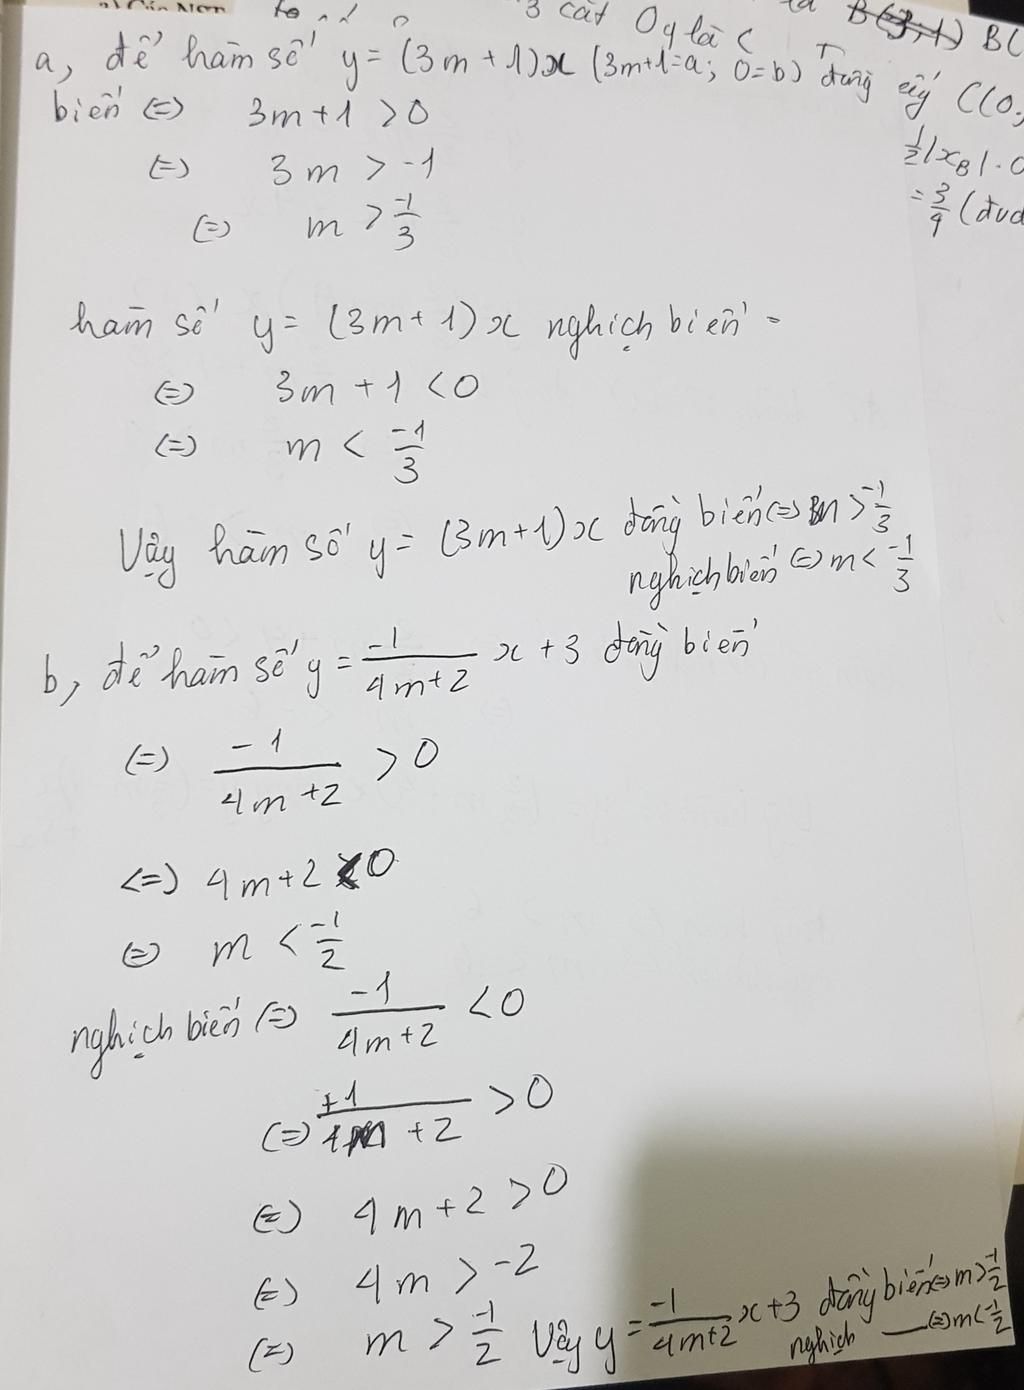 3 cắt Oy là C
B(3;1) B(
a, để hàm số y = (3m+1)x (3m+1=a; 0=b) đồng
C(0;
biến (=) 3m+1 >0
1/2|xB|.
(=) 3m > -1
= 3/4 (
(=) m > -1/3
hàm số y = (3m+1)x nghịch biến
(=) 3m+1 <0
(=) m < -1/3
Vậy hàm số y = (3m+1)x đồng biến (=) m > -1/3
nghịch biến (=) m < -1/3
b, để hàm số y = -1/4m+2 x+3 đồng biến
(=) -1/4m+2 >0
<=) 4m+2 <0
(=) m < -1/2
nghịch biến (=) -1/4m+2 <0
(=) +1/4m+2 >0
(=) 4m+2 >0
(=) 4m > -2
(=) m > -1/2 Vậy y = -1/4m+2 x+3 đồng biến (=) m > -1/2
nghịch — (=) m < -1/2